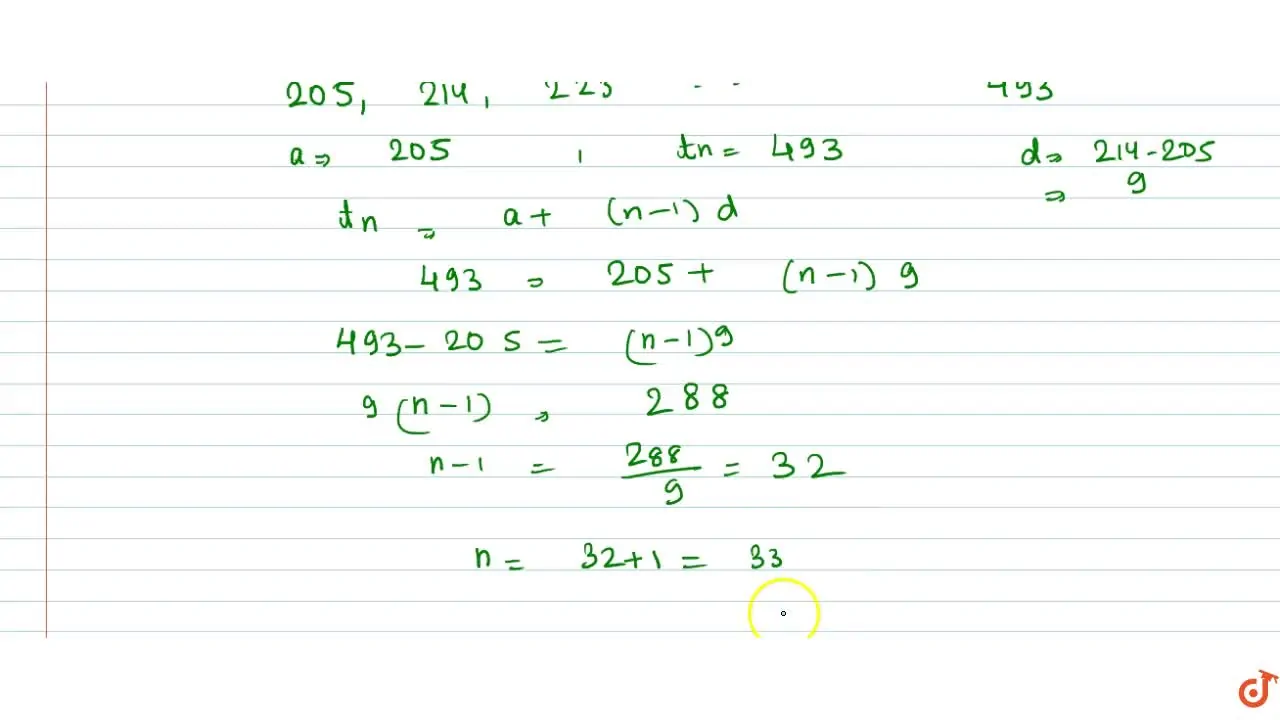 205, 214, 223 -- 493
a ⇒ 205 , tn = 493 d ⇒ 214-205
⇒ 9
tn = a+ (n-1) d
493 = 205+ (n-1) 9
493- 205 = (n-1)9
9 (n-1) = 288
n-1 = 288/9 = 32
n = 32+1 = 33